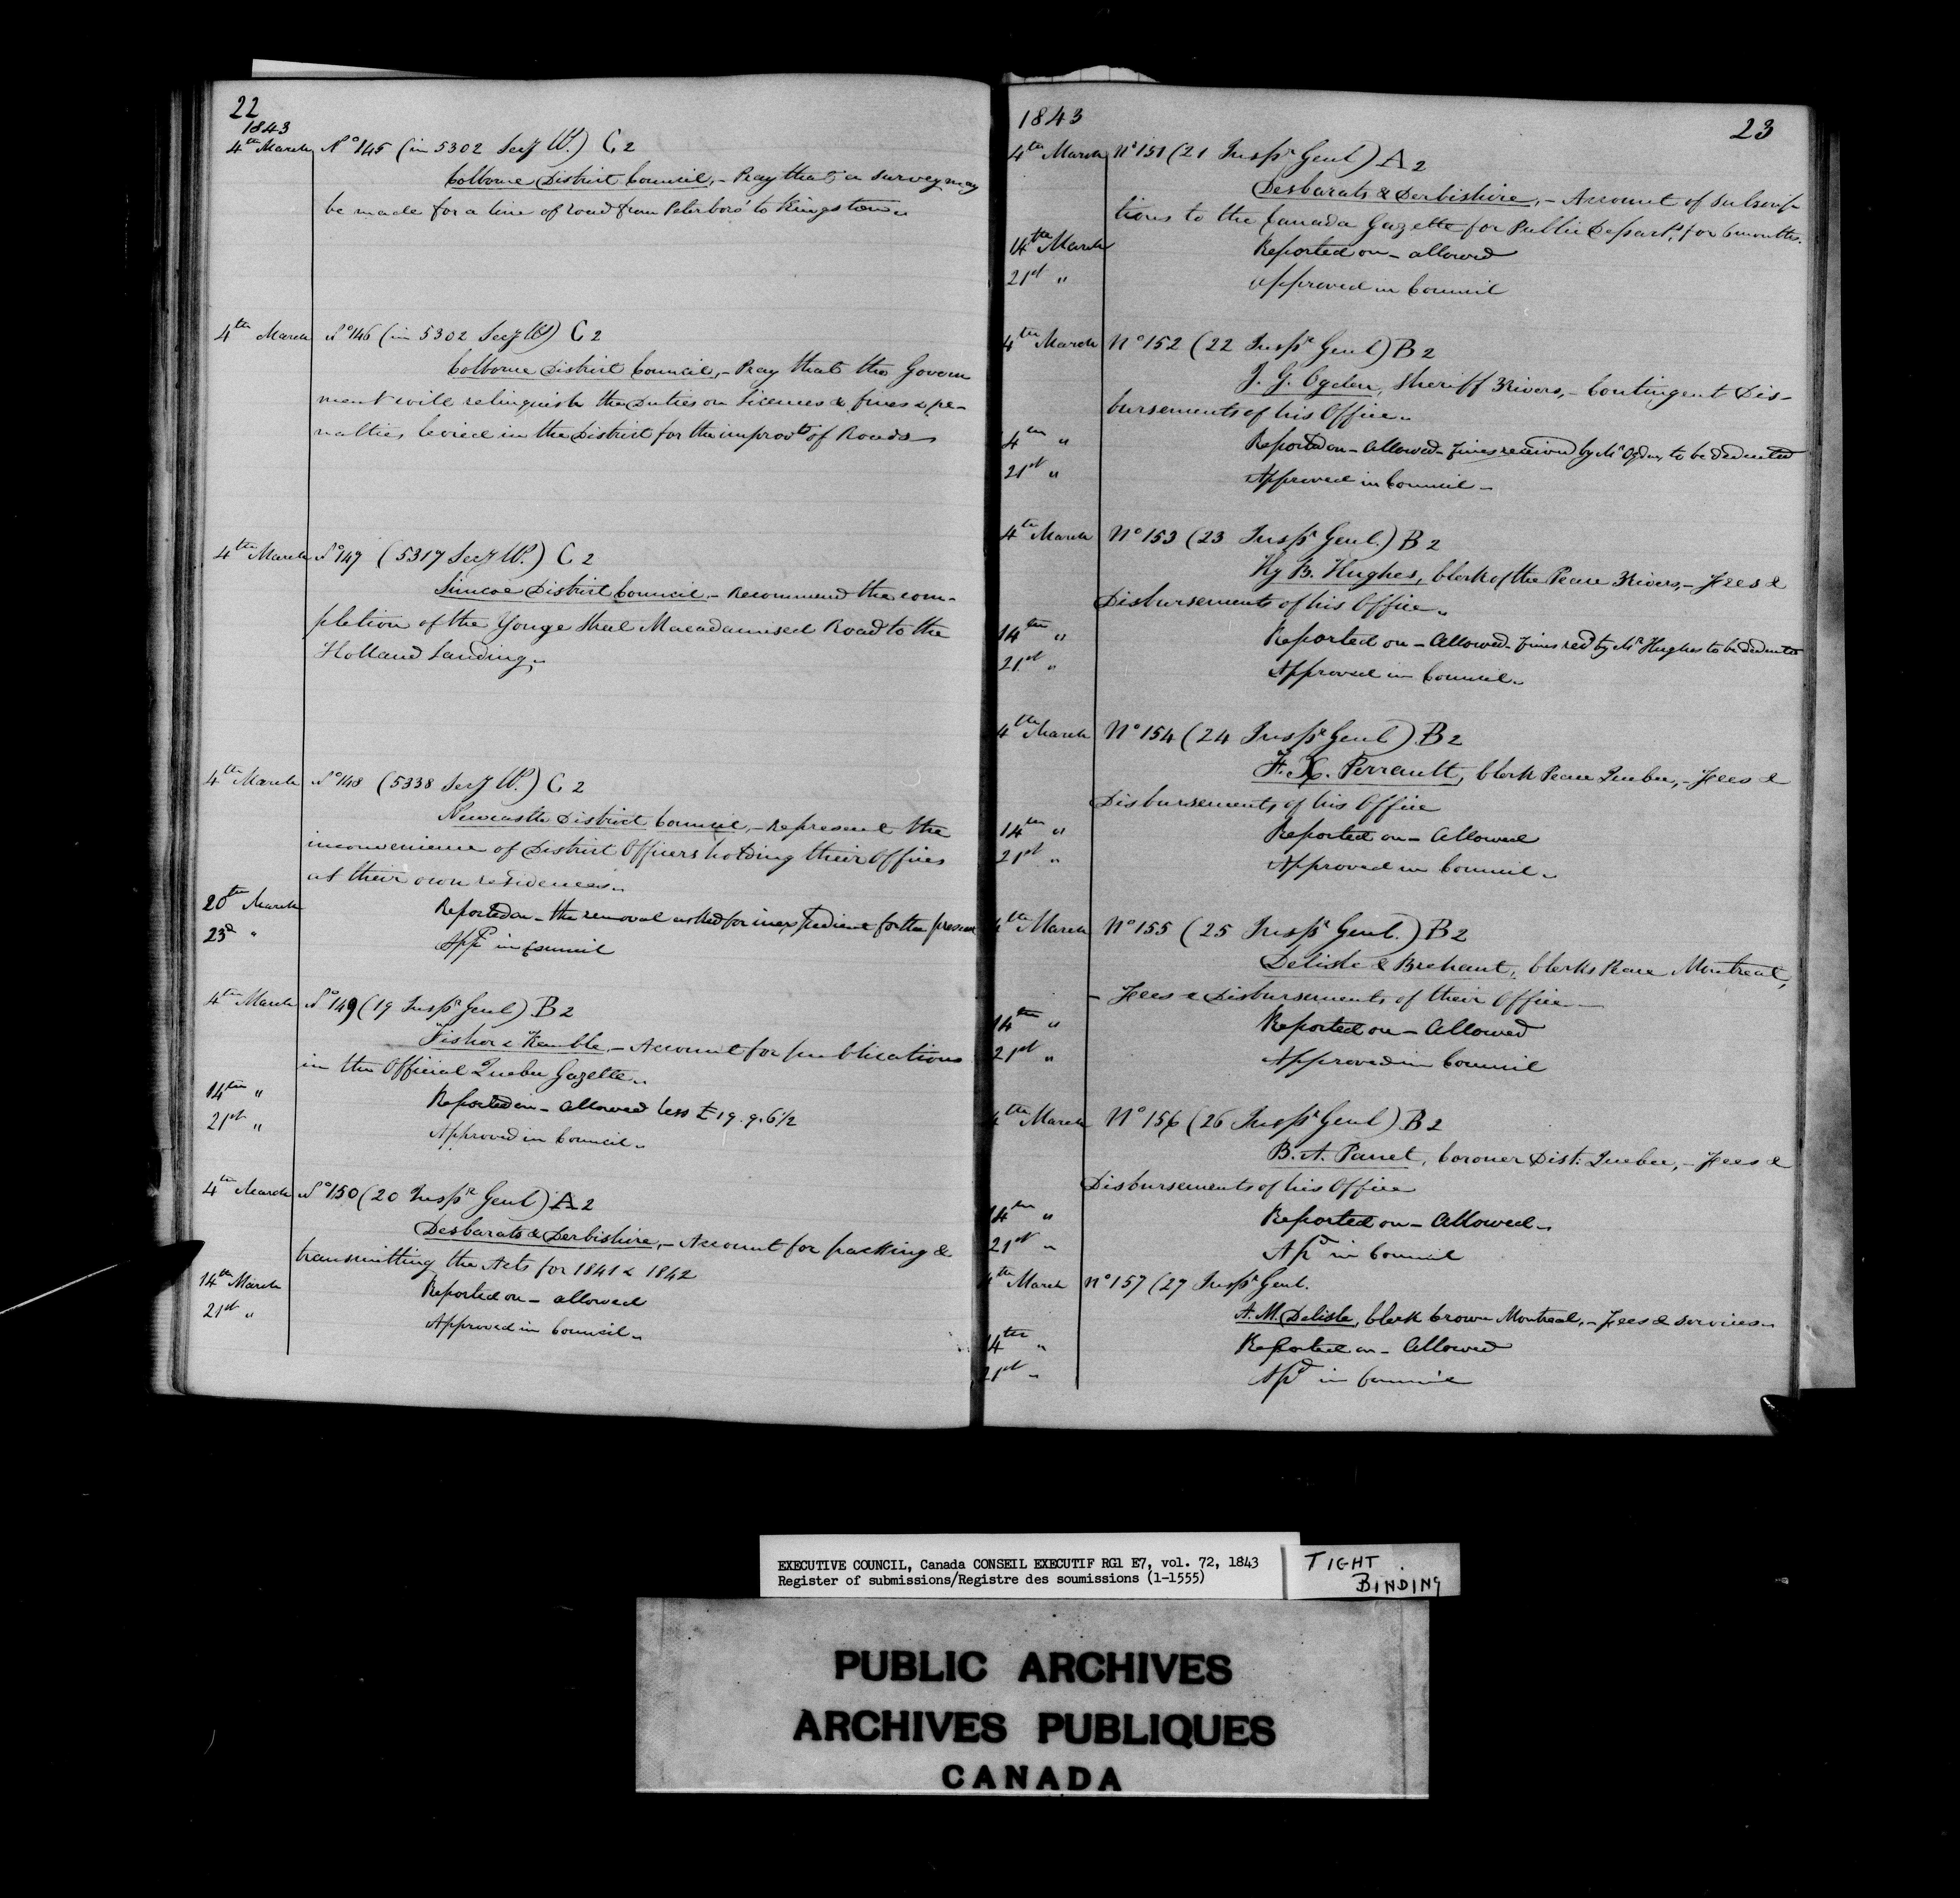 22
1843
4th March No 145 (in 5302 Secy W.) C 2
Colborne District Council, - Pray that a survey may
be made for a line of road from Peterboro' to Kingston
4th March No 146 (in 5302 Secy W) C 2
Colborne District Council, - Pray that the Govern
ment will relinquish the Duties on Licenses & fines & pe-
nalties, levied in the District for the improvt of Roads
4th March No 147 (5317 Secy W.) C 2
Simcoe District Council - Recommend the com-
pletion of the Yonge Street Macadamised Road to the
Holland Landing
4th March No 148 (5338 Secy W.) C 2
Newcastle District Council, - Represent the
inconvenience of District Officers holding their Offices
at their own residences
20th March Reported on - the removal asked for inexpedient for the present
23d " Appd in Council
4th March No 149 (19 Inspr Genl) B 2
Fisher & Kemble, - Account for publications
in the Official Quebec Gazette
14th " Reported on - Allowed less £19.9.6½
21st " Approved in Council
4th March No 150 (20 Inspr Genl) A 2
Desbarats & Derbishire, - Account for packing &
transmitting the Acts for 1841 & 1842
14th March Reported on - allowed
21st " Approved in Council
1843
23
4th March No 151 (21 Inspr Genl) A 2
Desbarats & Derbishire, - Account of subscrip-
tions to the Canada Gazette for Public Departs, for 6 months.
14th March Reported on - allowed
21st " Approved in Council
4th March No 152 (22 Inspr Genl) B 2
J. G. Ogden, Sheriff 3 Rivers, - Contingent Dis-
bursements of his Office
14th " Reported on - Allowed - fines received by Mr Ogden, to be deducted
21st " Approved in Council -
4th March No 153 (23 Inspr Genl.) B 2
Hy B. Hughes, Clerk of the Peace 3 Rivers, - Fees &
Disbursements of his Office
14th " Reported on - Allowed - fines recd by Mr Hughes to be deducted
21st " Approved in Council
4th March No 154 (24 Inspr Genl) B 2
F. X. Perrault, Clerk Peace Quebec, - Fees &
Disbursements of his Office
14th " Reported on - Allowed
21st " Approved in Council
4th March No 155 (25 Inspr Genl.) B 2
Delisle & Brehaut, Clerks Peace Montreal,
- Fees & Disbursements of their Office
14th " Reported on - Allowed
21st " Approved in Council
4th March No 156 (26 Inspr Genl) B 2
B. A. Panet, Coroner Dist: Quebec, - Fees &
Disbursements of his Office
14th " Reported on - Allowed
21st " Apd in Council
4th March No 157 (27 Inspr Genl.
A. M. Delisle, Clerk Crown Montreal, - Fees & services
14th " Reported on - Allowed
21st " Apd in Council
EXECUTIVE COUNCIL, Canada CONSEIL EXECUTIF RG1 E7, vol. 72, 1843
Register of submissions/Registre des soumissions (1-1555)
TIGHT
BINDING
PUBLIC ARCHIVES
ARCHIVES PUBLIQUES
CANADA